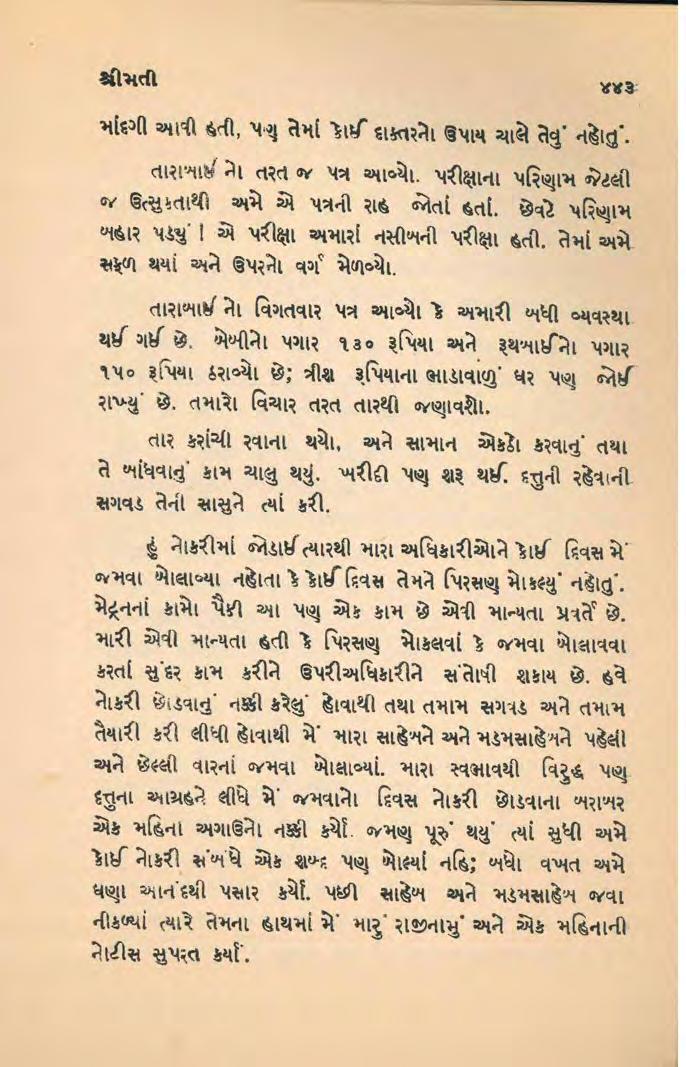 શ્રીમતી
૪૪૩
માંદગી આવી હતી, પણ તેમાં કોઈ દાક્તરનો ઉપાય ચાલે તેવું નહોતું.
તારાબાઈનો તરત જ પત્ર આવ્યો. પરીક્ષાના પરિણામ જેટલી
જ ઉત્સુકતાથી અમે એ પત્રની રાહ જોતાં હતાં. છેવટે પરિણામ
બહાર પડ્યું ! એ પરીક્ષા અમારાં નસીબની પરીક્ષા હતી. તેમાં અમે
સફળ થયાં અને ઉપરનો વર્ગ મેળવ્યો.
તારાબાઈનો વિગતવાર પત્ર આવ્યો કે અમારી બધી વ્યવસ્થા
થઈ ગઈ છે. બેબીનો પગાર ૧૩૦ રૂપિયા અને રૂથબાઈનો પગાર
૧૫૦ રૂપિયા ઠરાવ્યો છે; ત્રીશ રૂપિયાના ભાડાવાળું ઘર પણ જોઈ
રાખ્યું છે. તમારો વિચાર તરત તારથી જણાવશો.
તાર કરાંચી રવાના થયો, અને સામાન એકઠો કરવાનું તથા
તે બાંધવાનું કામ ચાલુ થયું. ખરીદી પણ શરૂ થઈ. દત્તુની રહેવાની
સગવડ તેની સાસુને ત્યાં કરી.
હું નોકરીમાં જોડાઈ ત્યારથી મારા અધિકારીઓને કોઈ દિવસ મેં
જમવા બોલાવ્યા નહોતા કે કોઈ દિવસ તેમને પિરસણ મોકલ્યું નહોતું.
મેટ્રનનાં કામો પૈકી આ પણ એક કામ છે એવી માન્યતા પ્રવર્તે છે.
મારી એવી માન્યતા હતી કે પિરસણ મોકલવાં કે જમવા બોલાવવા
કરતાં સુંદર કામ કરીને ઉપરીઅધિકારીને સંતોષી શકાય છે. હવે
નોકરી છોડવાનું નક્કી કરેલું હોવાથી તથા તમામ સગવડ અને તમામ
તૈયારી કરી લીધી હોવાથી મેં મારા સાહેબને અને મડમસાહેબને પહેલી
અને છેલ્લી વારનાં જમવા બોલાવ્યાં. મારા સ્વભાવથી વિરુદ્ધ પણ
દત્તુના આગ્રહને લીધે મેં જમવાનો દિવસ નોકરી છોડવાના બરાબર
એક મહિના અગાઉનો નક્કી કર્યો. જમણ પૂરું થયું ત્યાં સુધી અમે
કોઈ નોકરી સંબંધે એક શબ્દ પણ બોલ્યાં નહિ; બધો વખત અમે
ઘણા આનંદથી પસાર કર્યો. પછી સાહેબ અને મડમસાહેબ જવા
નીકળ્યાં ત્યારે તેમના હાથમાં મેં મારું રાજીનામું અને એક મહિનાની
નોટીસ સુપરત કર્યાં.